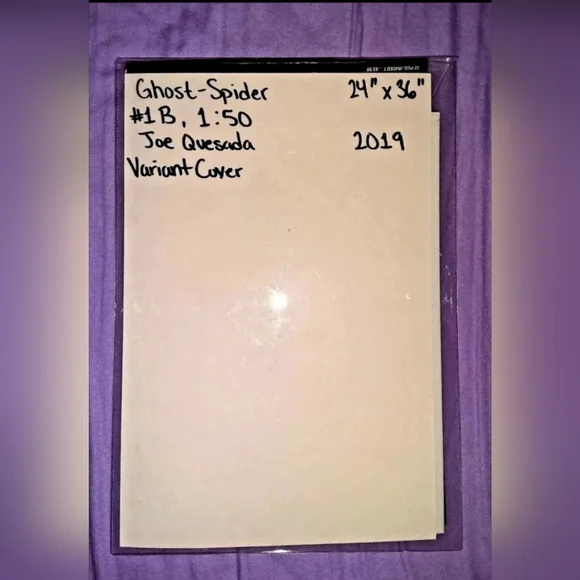 Ghost-Spider 24" x 36"
#1B, 1:50
Joe Quesada 2019
Variant Cover